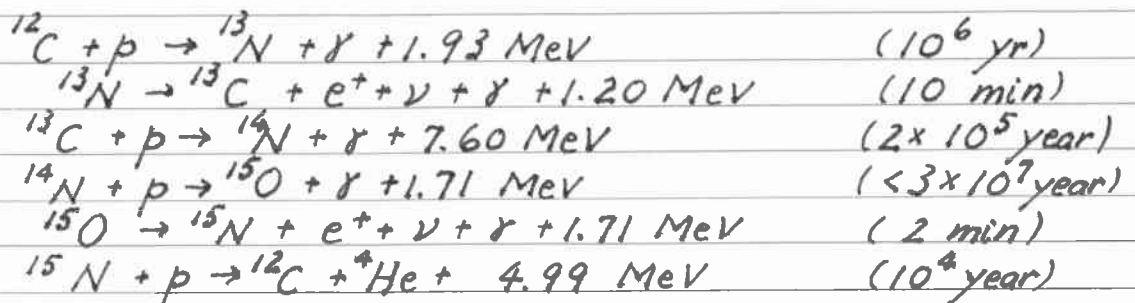 ¹²C + p → ¹³N + γ + 1.93 MeV (10⁶ yr)
¹³N → ¹³C + e⁺ + ν + γ + 1.20 MeV (10 min)
¹³C + p → ¹⁴N + γ + 7.60 MeV (2 x 10⁵ year)
¹⁴N + p → ¹⁵O + γ + 1.71 MeV (< 3 x 10⁷ year)
¹⁵O → ¹⁵N + e⁺ + ν + γ + 1.71 MeV (2 min)
¹⁵N + p → ¹²C + ⁴He + 4.99 MeV (10⁴ year)